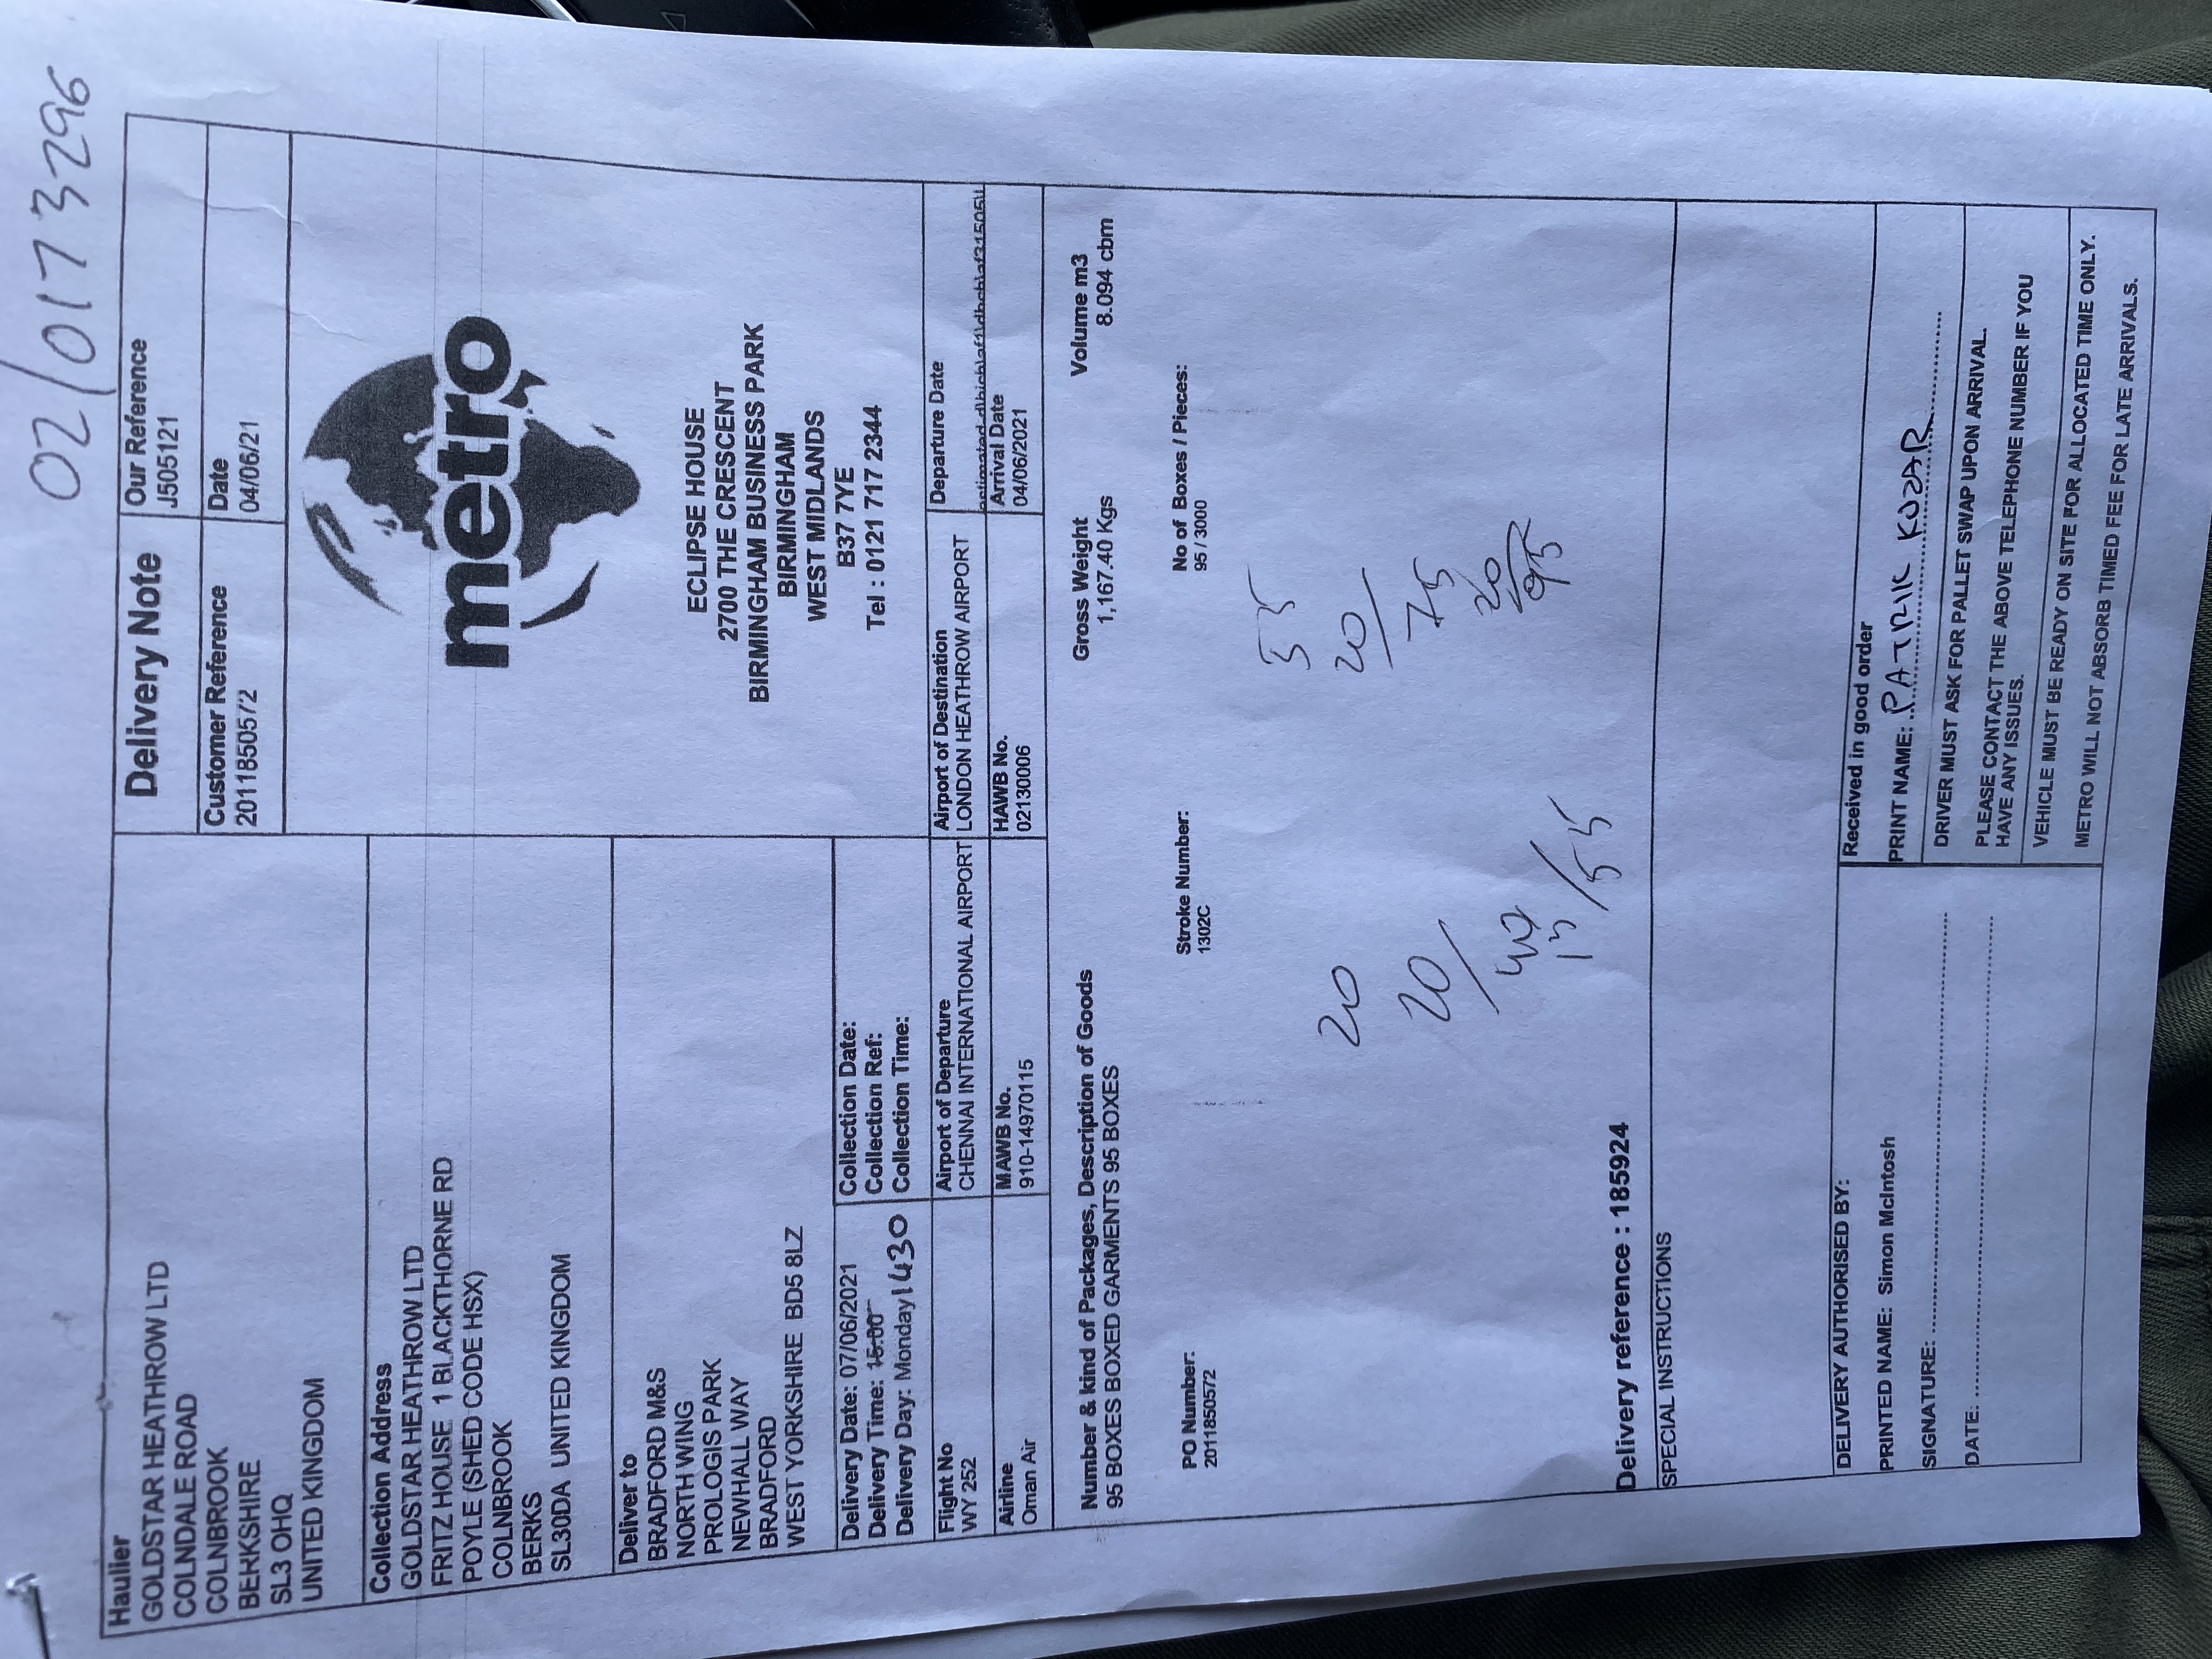 02/0173296
Haulier
GOLDSTAR HEATHROW LTD
COLNDALE ROAD
COLNBROOK
BERKSHIRE
SL3 OHQ
UNITED KINGDOM
Delivery Note
Our Reference
J505121
Customer Reference
2011850572
Date
04/06/21
Collection Address
GOLDSTAR HEATHROW LTD
FRITZ HOUSE 1 BLACKTHORNE RD
POYLE (SHED CODE HSX)
COLNBROOK
BERKS
SL30DA UNITED KINGDOM
metro
Deliver to
BRADFORD M&S
NORTH WING
PROLOGIS PARK
NEWHALL WAY
BRADFORD
WEST YORKSHIRE BD5 8LZ
ECLIPSE HOUSE
2700 THE CRESCENT
BIRMINGHAM BUSINESS PARK
BIRMINGHAM
WEST MIDLANDS
B37 7YE
Tel : 0121 717 2344
Delivery Date: 07/06/2021
Delivery Time: 15:00
Delivery Day: Monday 1430
Collection Date:
Collection Ref:
Collection Time:
Flight No
WY 252
Airport of Departure
CHENNAI INTERNATIONAL AIRPORT
Airport of Destination
LONDON HEATHROW AIRPORT
Departure Date
Airline
Oman Air
MAWB No.
910-14970115
HAWB No.
02130006
Arrival Date
04/06/2021
Number & kind of Packages, Description of Goods
95 BOXES BOXED GARMENTS 95 BOXES
Gross Weight
1,167.40 Kgs
Volume m3
8.094 cbm
PO Number:
2011850572
Stroke Number:
1302C
No of Boxes / Pieces:
95 / 3000
20
20/
40
15/55
55
20/
75
20
95
Delivery reference : 185924
SPECIAL INSTRUCTIONS
DELIVERY AUTHORISED BY:
PRINTED NAME: Simon McIntosh
SIGNATURE:
DATE:
Received in good order
PRINT NAME: PATRIK KOZAR
DRIVER MUST ASK FOR PALLET SWAP UPON ARRIVAL.
PLEASE CONTACT THE ABOVE TELEPHONE NUMBER IF YOU
HAVE ANY ISSUES.
VEHICLE MUST BE READY ON SITE FOR ALLOCATED TIME ONLY.
METRO WILL NOT ABSORB TIMED FEE FOR LATE ARRIVALS.